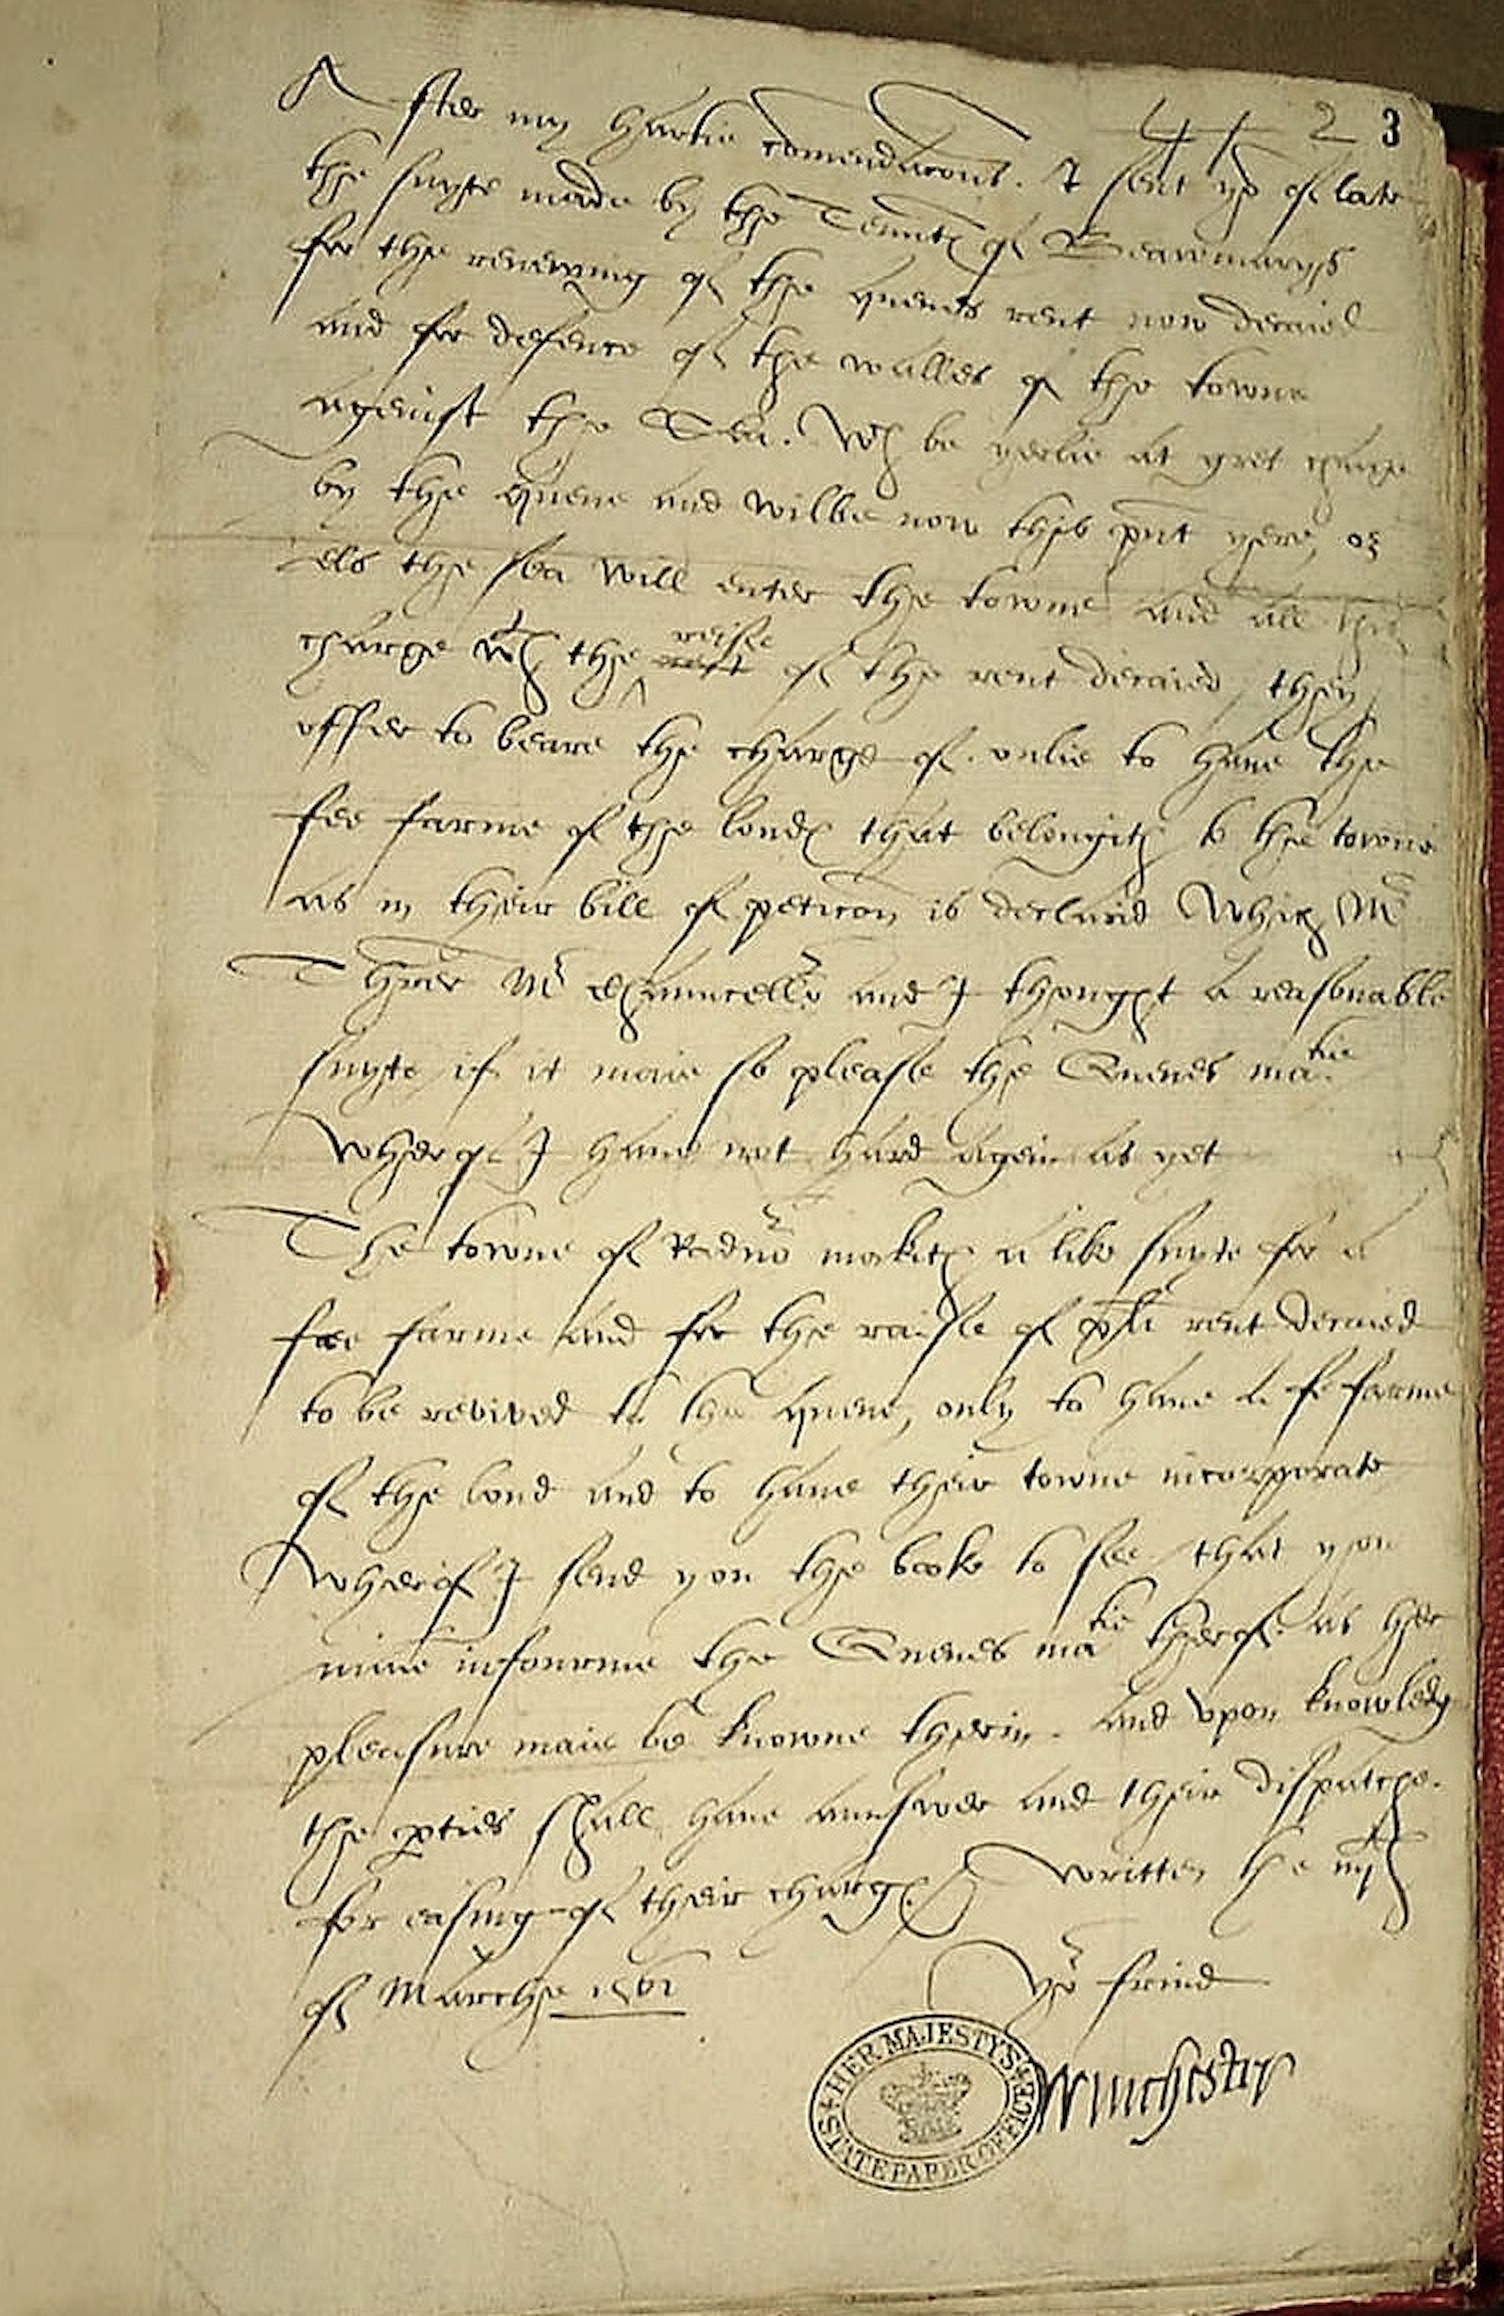 412 3
After my hartie comendacons. I sent yo of late
the suyte made by the Tennts of Beawmarys
for the renewing of the quenes rent now decaied
and for defence of the walles of the towne
against the Sea. Wch be yerlie at gret charge
by the quene and wilbe now this pnt yere, or
els the sea will enter the towne and all this
charge wth the reise rest of the rent decaied, they
offer to beare the charge of. onlie to have the
fee farme of the lond that belongith to the towne
as in their bill of peticon is declarid Which Mr
Threr Mr Chauncellor and I thought a reasonable
suyte if it maie so please the Quenes matie
Wherof I have not hard again as yet
The towne of Radnor makith a like suyte for a
fee farme and for the raisse of xli rent decaied
to be revived to the quene, only to have a fe farme
of the lond and to have their towne incorporate
Wherof I send you the booke to see that you
maie infourme the Quenes matie therof. as her
pleasure maie be knowne therin. And upon knowledg
the pties shall have aunswer and their dispatche.
for easing of their charge. Written the iiijth
of Marche 1561
Yor frind
Winchester
HER MAJESTYS STATE PAPER OFFICE